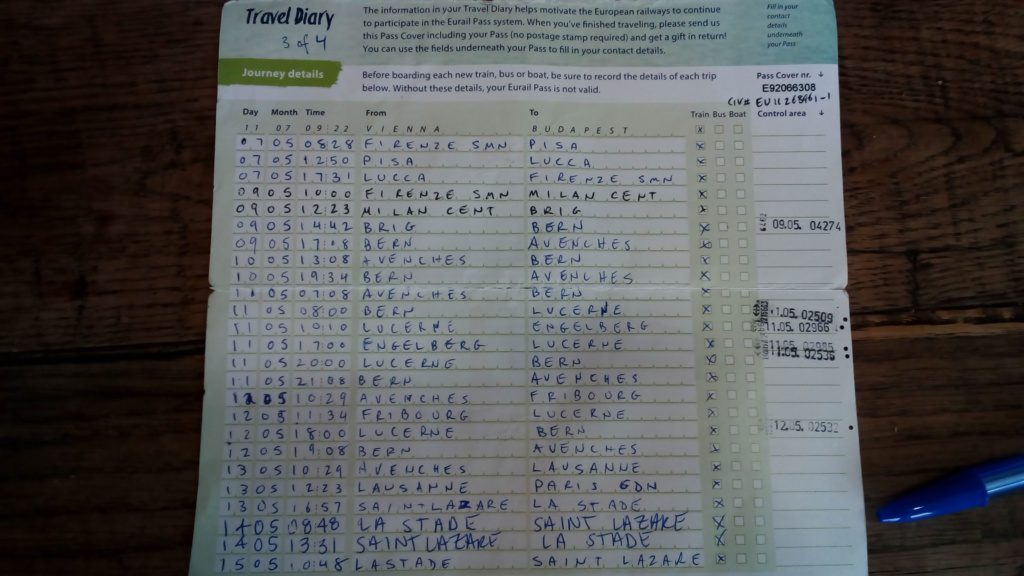 Travel Diary
3 of 4
The information in your Travel Diary helps motivate the European railways to continue
to participate in the Eurail Pass system. When you've finished traveling, please send us
this Pass Cover including your Pass (no postage stamp required) and get a gift in return!
You can use the fields underneath your Pass to fill in your contact details.
Fill in your
contact
details
underneath
your Pass
Journey details
Before boarding each new train, bus or boat, be sure to record the details of each trip
below. Without these details, your Eurail Pass is not valid.
Pass Cover nr. ↓
E92066308
Day Month Time From To Train Bus Boat Control area ↓
11 07 09:22 VIENNA BUDAPEST
07 05 08:28 FIRENZE SMN PISA
07 05 12:50 PISA LUCCA
07 05 17:31 LUCCA FIRENZE SMN
09 05 10:00 FIRENZE SMN MILAN CENT
09 05 12:23 MILAN CENT BRIG
09 05 14:42 BRIG BERN 09.05. 04274
09 05 17:08 BERN AVENCHES
10 05 13:08 AVENCHES BERN
10 05 19:34 BERN AVENCHES
11 05 07:08 AVENCHES BERN
11 05 08:00 BERN LUCERNE 11.05. 02509
11 05 10:10 LUCERNE ENGELBERG 11.05. 02966
11 05 17:00 ENGELBERG LUCERNE
11 05 20:00 LUCERNE BERN 11.05. 02536
11 05 21:08 BERN AVENCHES
12 05 10:29 AVENCHES FRIBOURG
12 05 11:34 FRIBOURG LUCERNE
12 05 18:00 LUCERNE BERN 12.05. 02532
12 05 19:08 BERN AVENCHES
13 05 10:29 AVENCHES LAUSANNE
13 05 12:23 LAUSANNE PARIS GDN
13 05 16:57 SAINT LAZARE LA STADE
14 05 08:48 LA STADE SAINT LAZARE
14 05 13:31 SAINT LAZARE LA STADE
15 05 10:48 LASTADE SAINT LAZARE